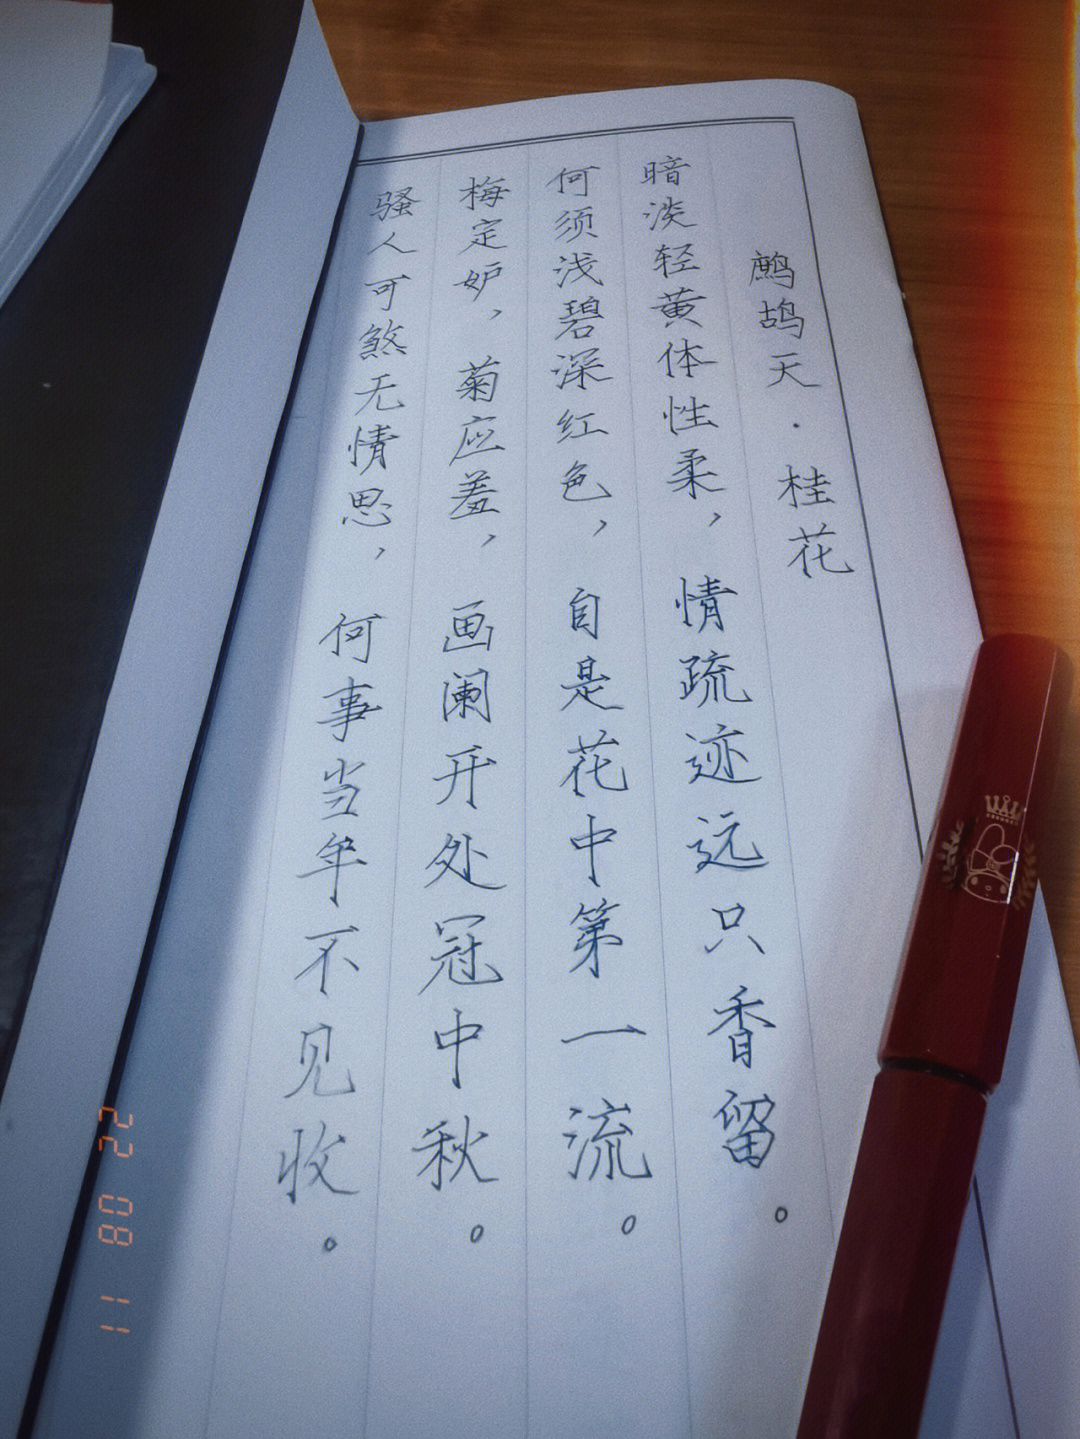 鹧鸪天·桂花
暗淡轻黄体性柔，情疏迹远只香留。
何须浅碧深红色，自是花中第一流。
梅定妒，菊应羞，画阑开处冠中秋。
骚人可煞无情思，何事当年不见收。
22 08 11